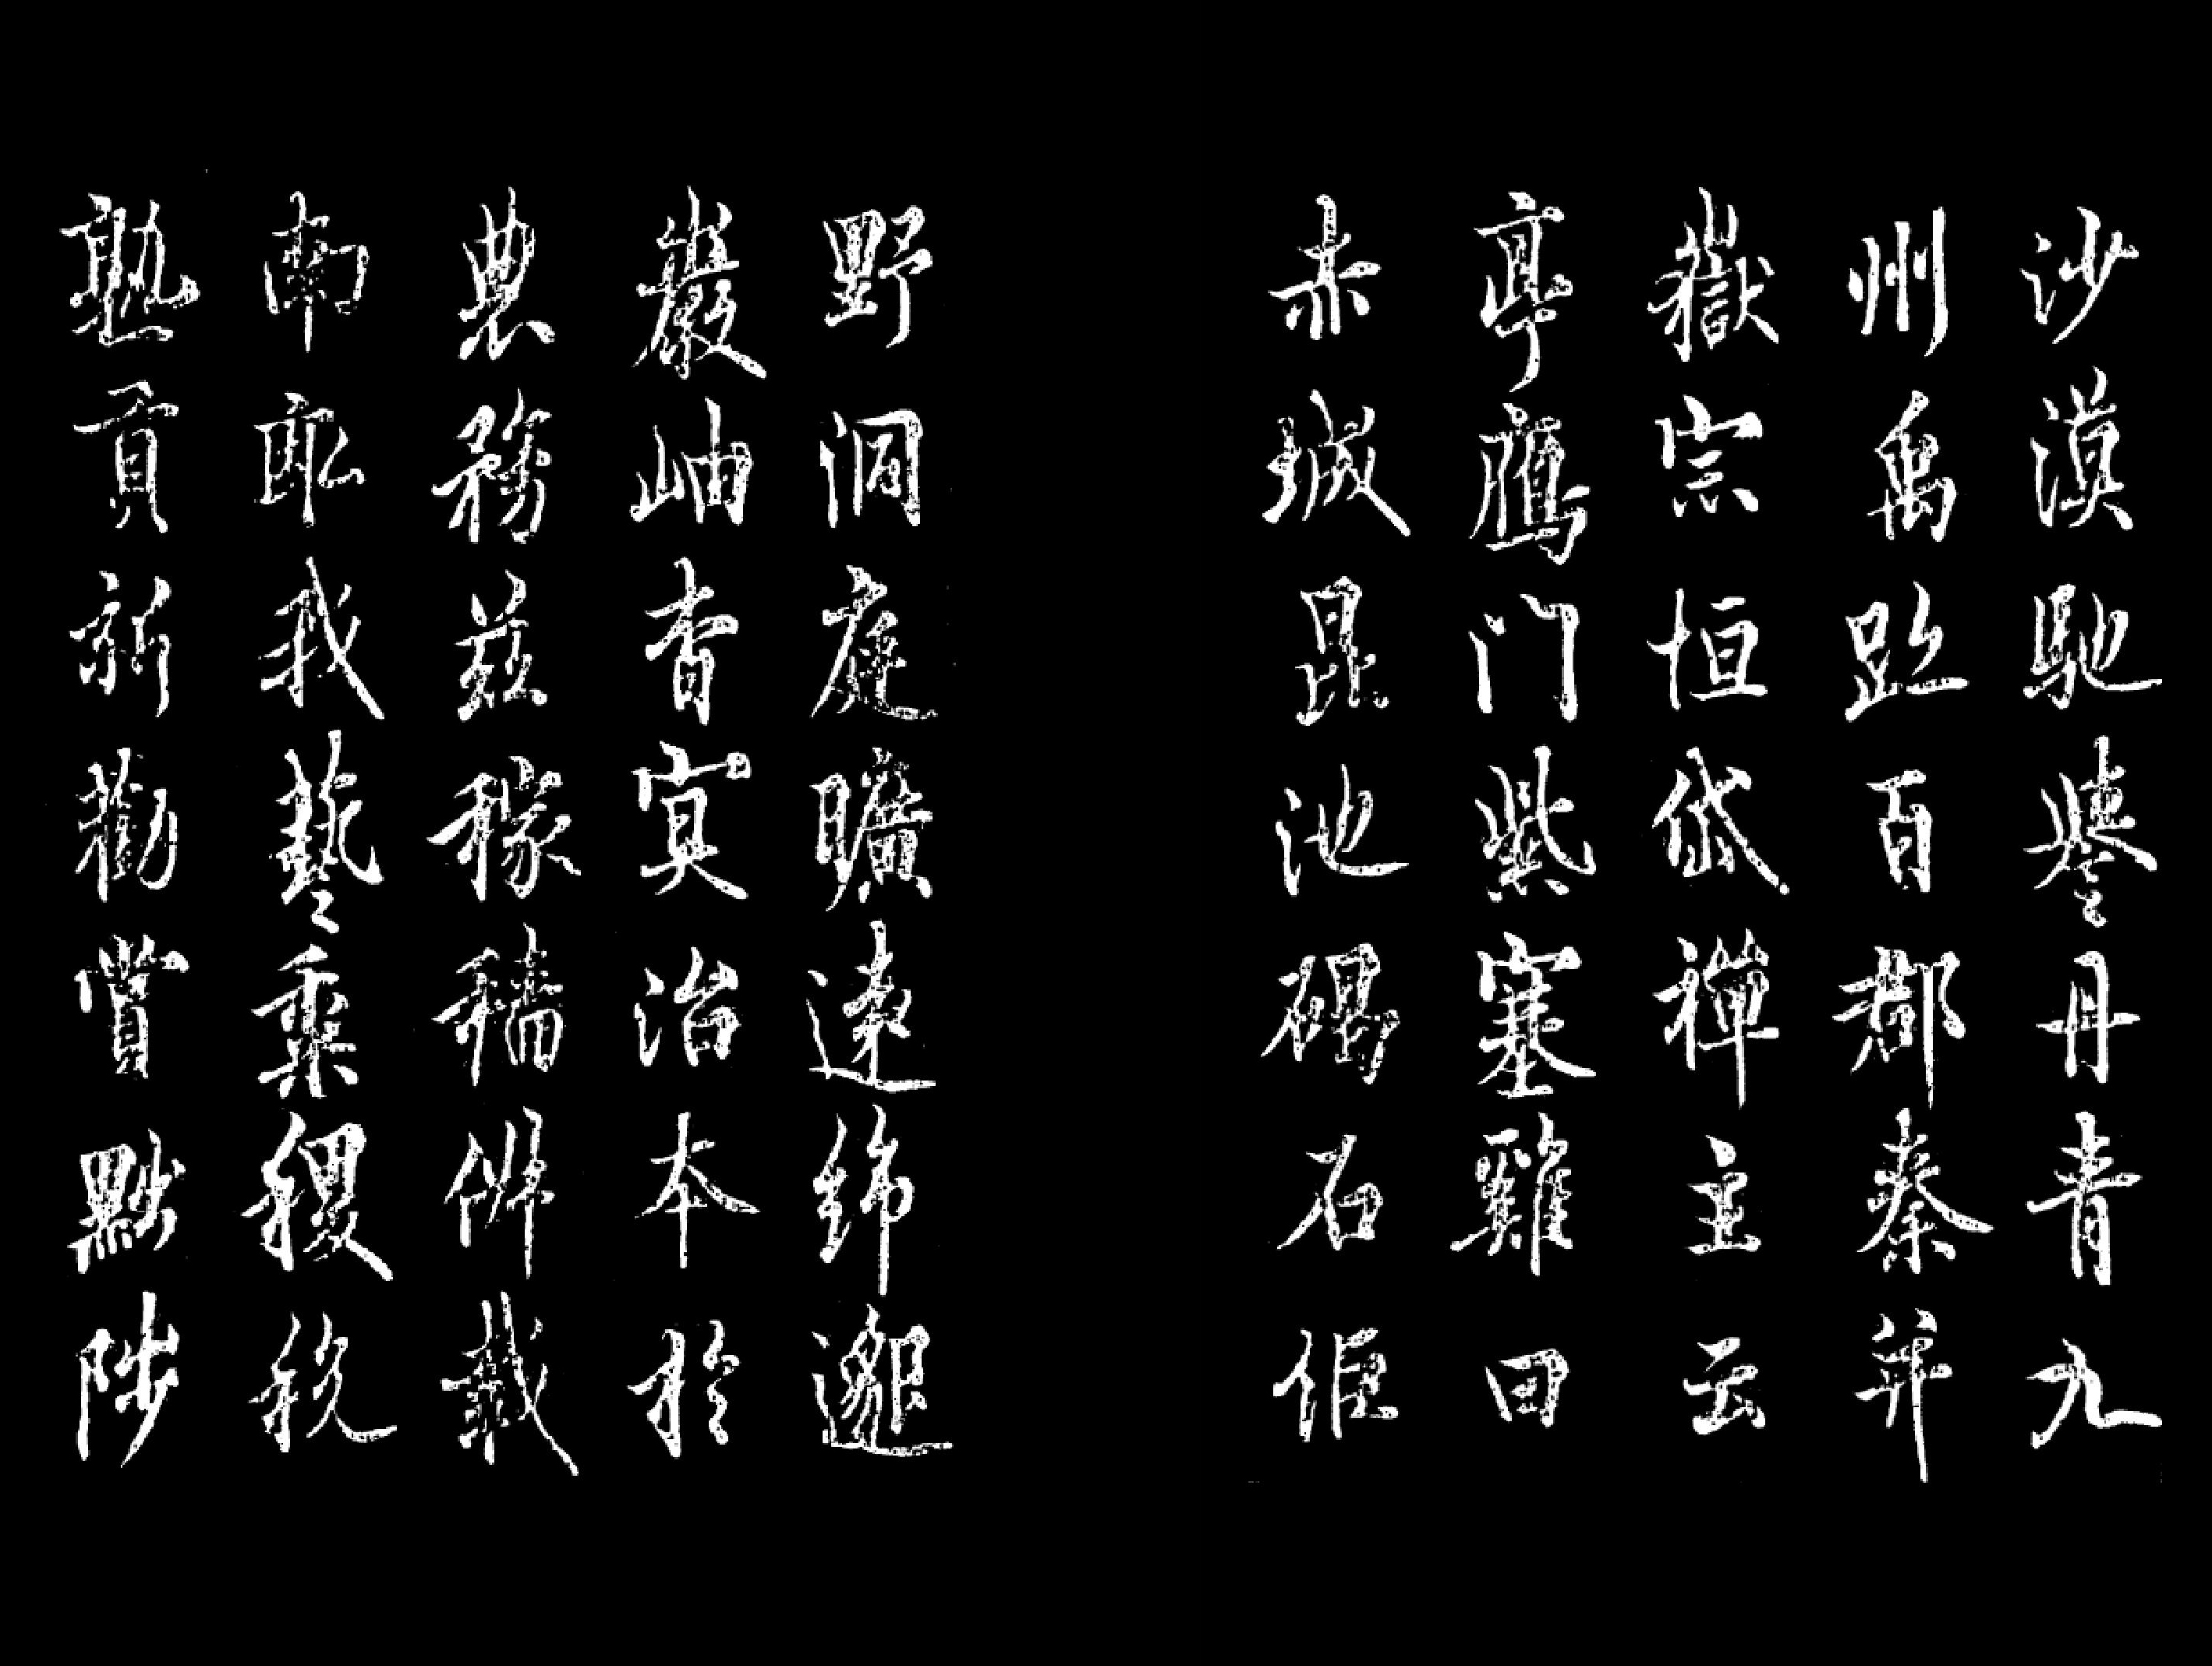 沙漠馳譽丹青九
州禹跡百郡秦并
嶽宗恒岱禪主云
亭鴈門紫塞雞田
赤城昆池碣石鉅
野洞庭曠遠綿邈
巖岫杳冥治本於
農務茲稼穡俶載
南畝我藝黍稷稅
熟貢新勸賞黜陟